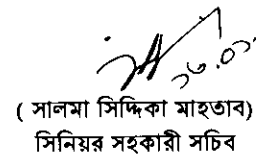 ১৬.০১.
( সালমা সিদ্দিকা মাহতাব)
সিনিয়র সহকারী সচিব